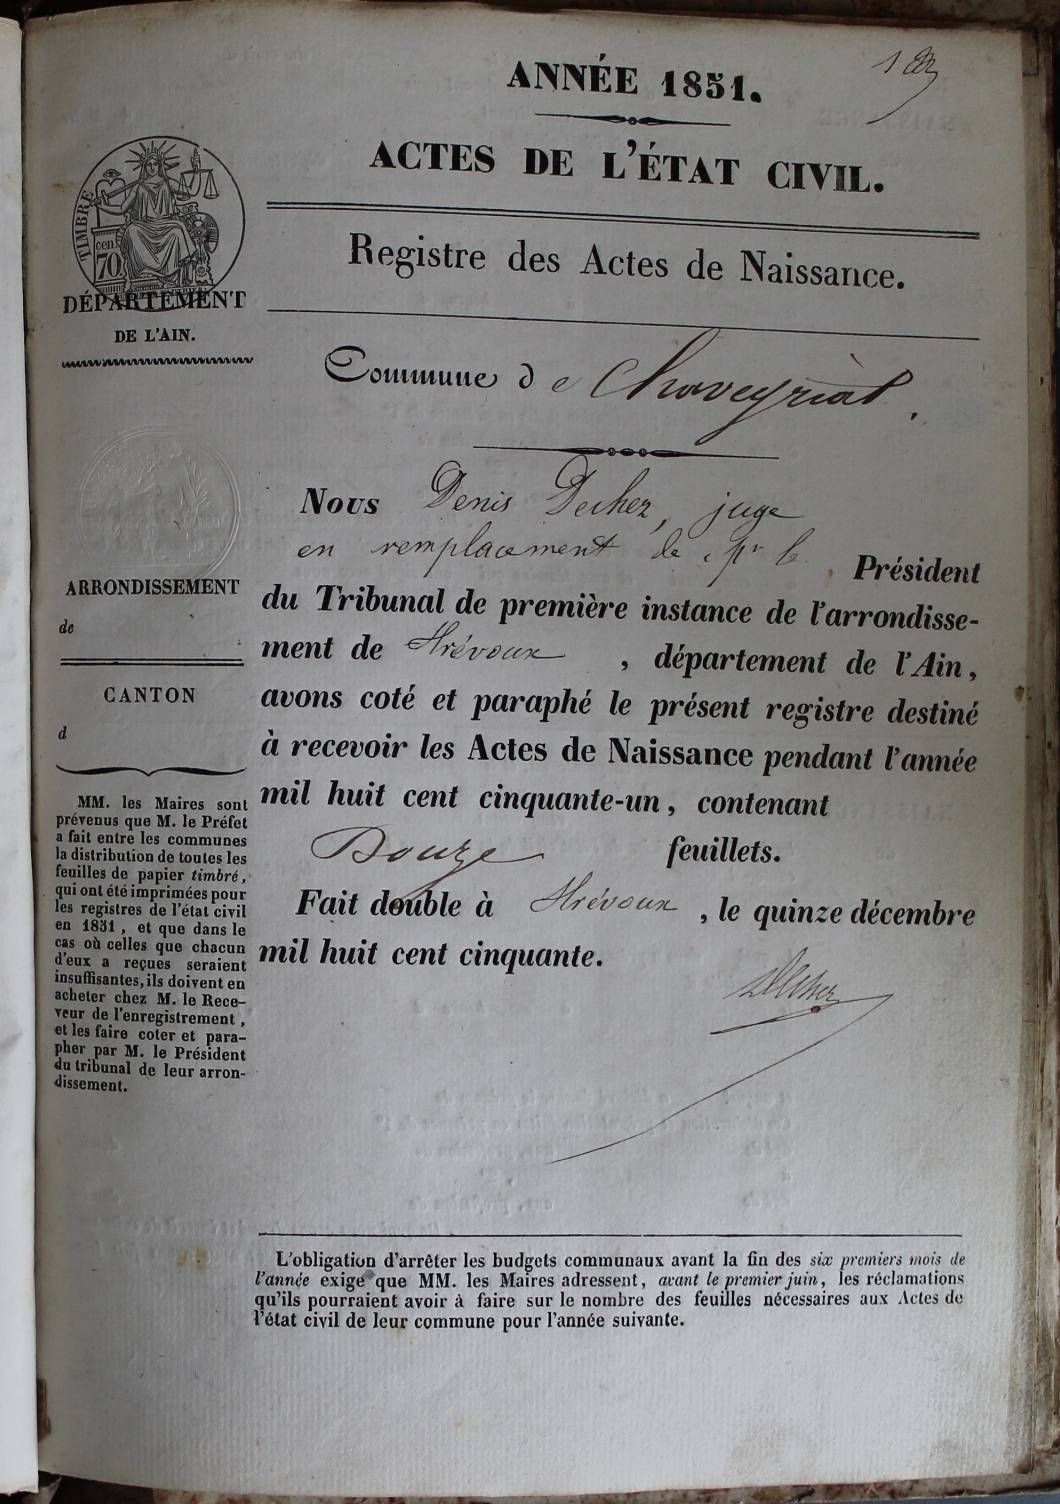 1 er
ANNÉE 1851.
ACTES DE L'ÉTAT CIVIL.
TIMBRE
cen
70
DÉPARTEMENT
DE L'AIN.
Registre des Actes de Naissance.
Commune de Chaveyriat.
ARRONDISSEMENT
de
CANTON
d
MM. les Maires sont
prévenus que M. le Préfet
a fait entre les communes
la distribution de toutes les
feuilles de papier timbré,
qui ont été imprimées pour
les registres de l'état civil
en 1851, et que dans le
cas où celles que chacun
d'eux a reçues seraient
insuffisantes, ils doivent en
acheter chez M. le Rece-
veur de l'enregistrement,
et les faire coter et para-
pher par M. le Président
du tribunal de leur arron-
dissement.
Nous Denis Decher, juge
en remplacement de Mr le Président
du Tribunal de première instance de l'arrondisse-
ment de Trévoux, département de l'Ain,
avons coté et paraphé le présent registre destiné
à recevoir les Actes de Naissance pendant l'année
mil huit cent cinquante-un, contenant
Douze feuillets.
Fait double à Trévoux, le quinze décembre
mil huit cent cinquante.
Decher
L'obligation d'arrêter les budgets communaux avant la fin des six premiers mois de
l'année exige que MM. les Maires adressent, avant le premier juin, les réclamations
qu'ils pourraient avoir à faire sur le nombre des feuilles nécessaires aux Actes de
l'état civil de leur commune pour l'année suivante.